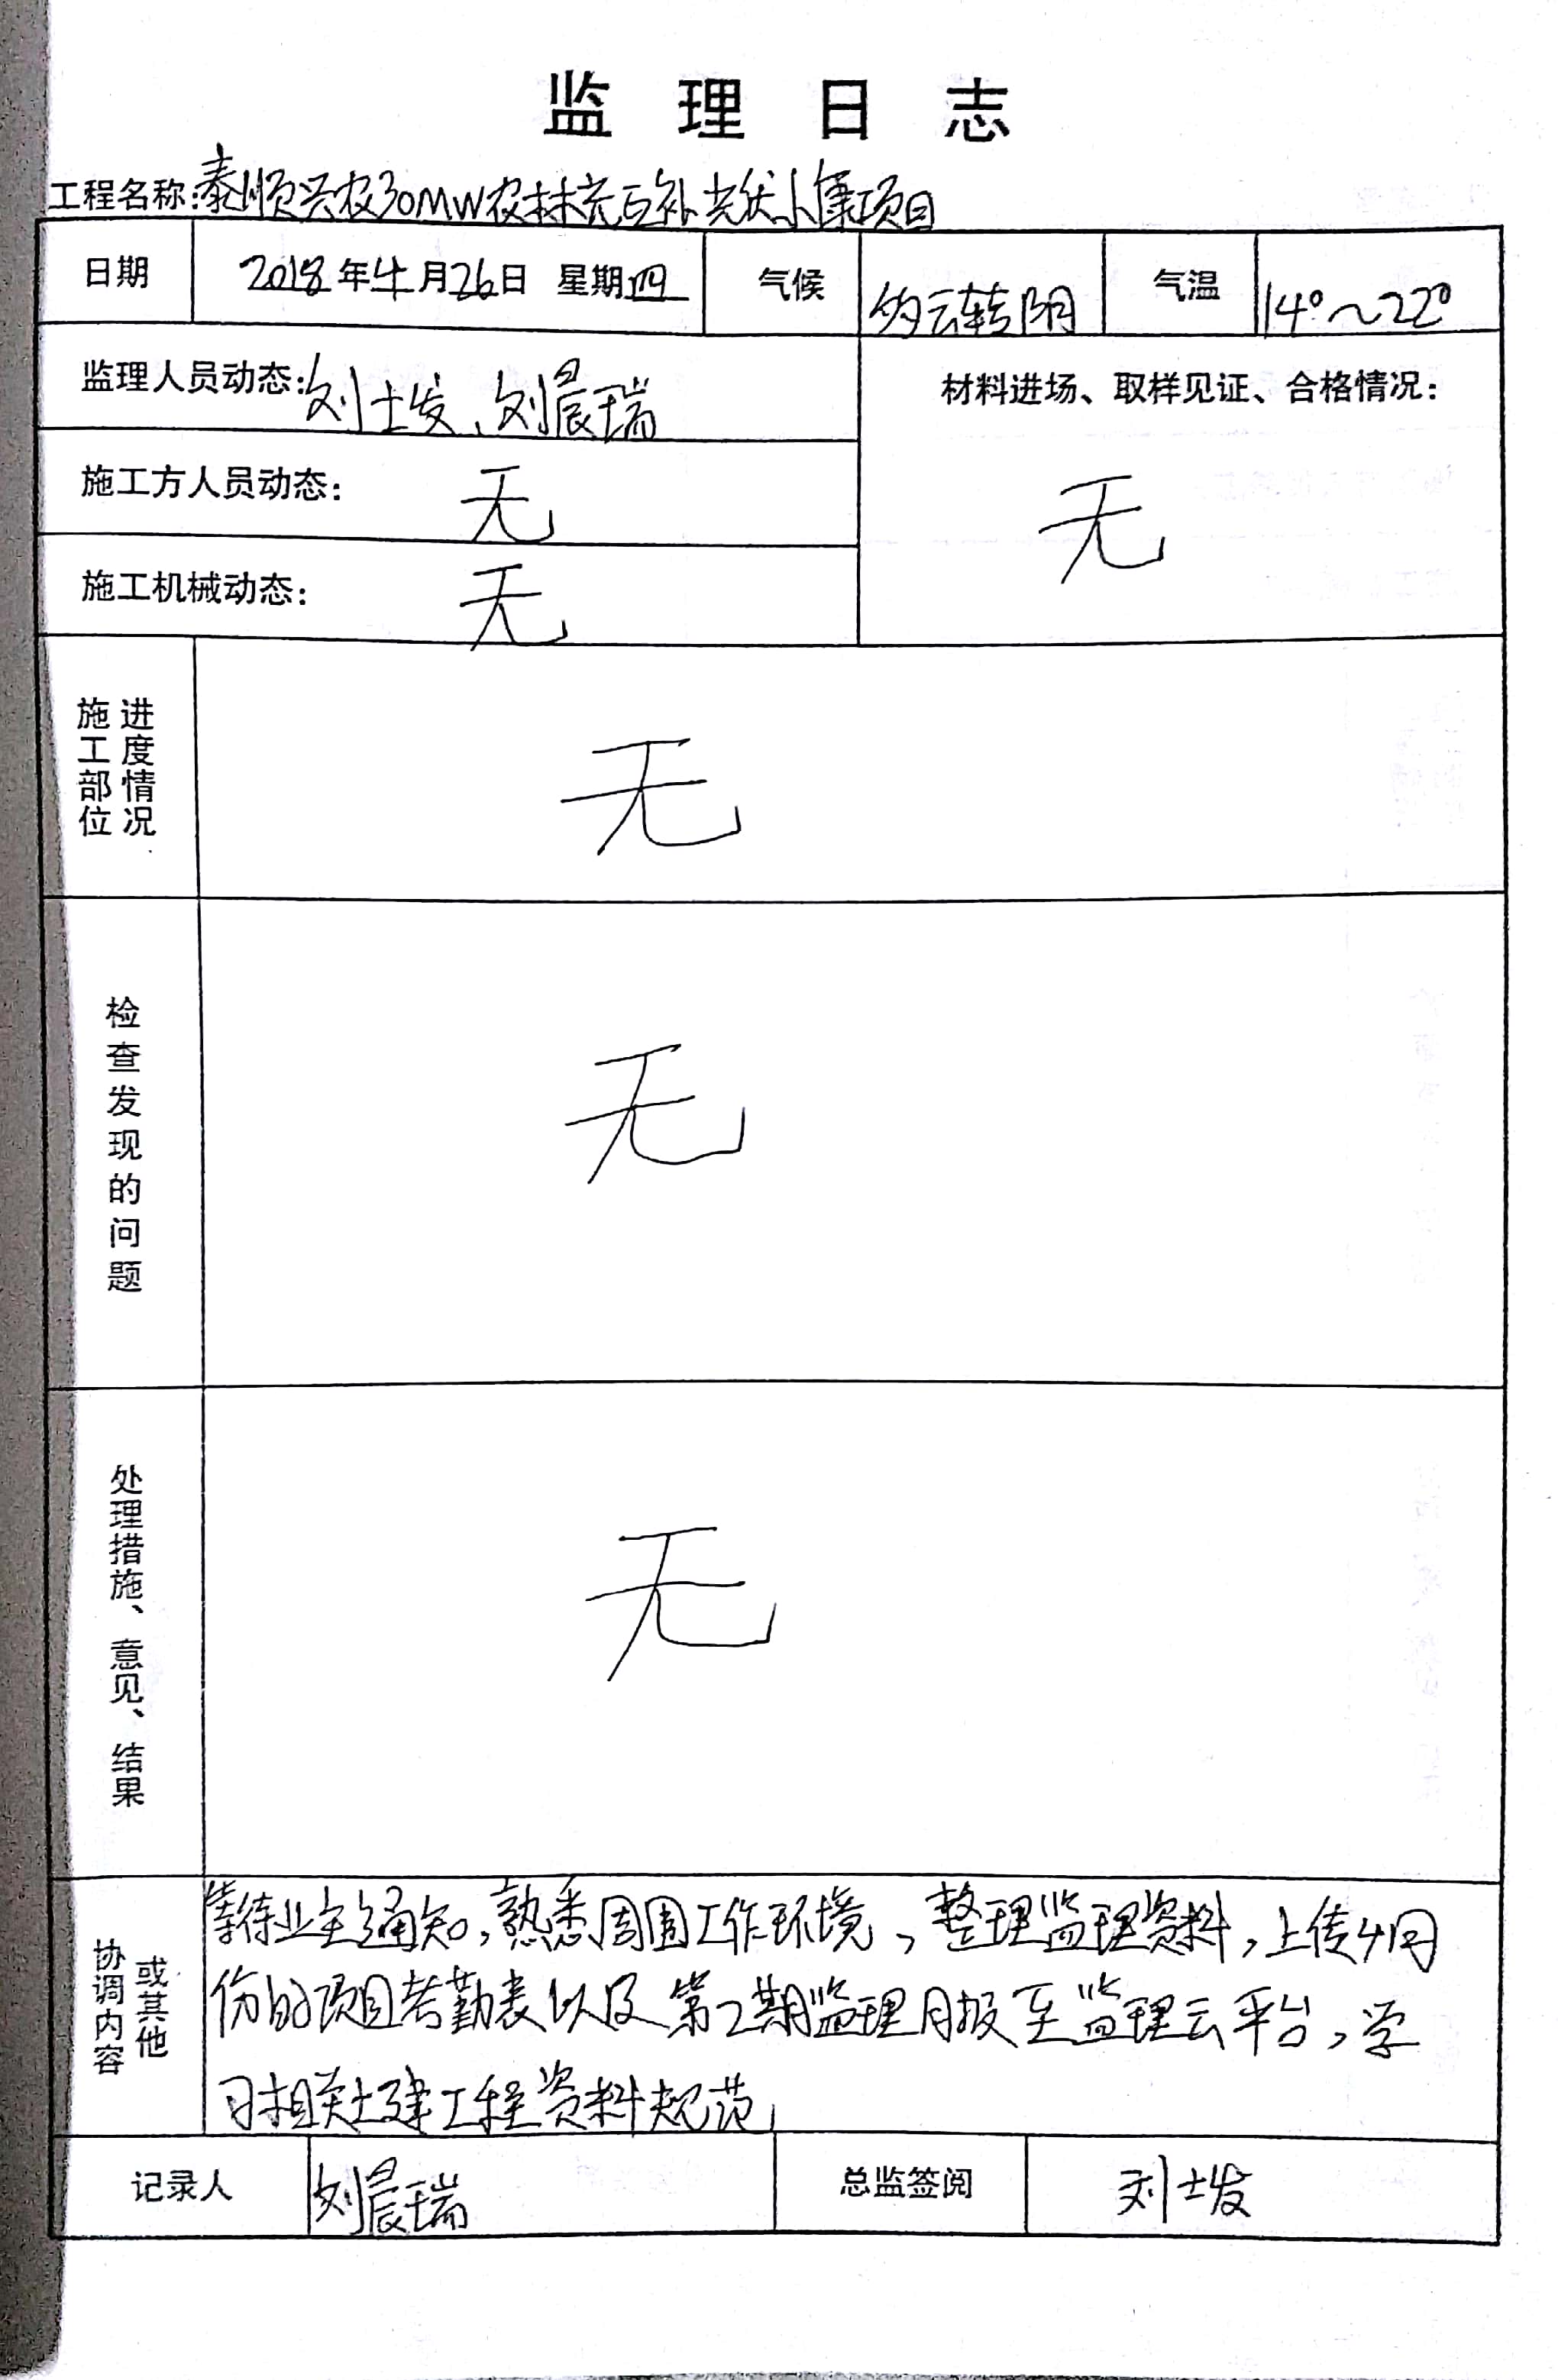 监理日志
工程名称:泰顺兴农30MW农林光互补光伏小康项目
日期 2018年4月26日 星期四 气候 多云转阴 气温 14°~22°
监理人员动态:刘士发、刘晨瑞
材料进场、取样见证、合格情况:
施工方人员动态: 无
无
施工机械动态: 无
施工部位
进度情况
无
检查发现的问题
无
处理措施、意见、结果
无
协调内容
或其他
等待业主通知,熟悉周围工作环境,整理监理资料,上传4月
份的项目考勤表以及第2期监理月报至监理云平台,学
习相关土建工程资料规范
记录人 刘晨瑞 总监签阅 刘士发